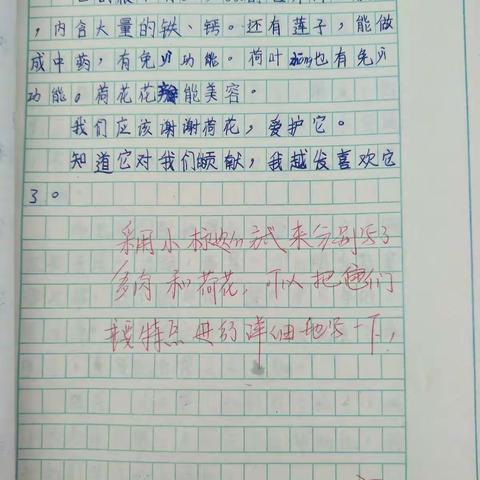 ，内含大量的铁、钙。还有莲子，能做
成中药，有免yi功能。荷叶也有免yi
功能。荷花花瓣能美容。
我们应该谢谢荷花，爱护它。
知道它对我们贡献，我越发喜欢它
了。
采用小标题的方式来分别写了
多肉和荷花，可以把它们
特点进行详细地写一下！